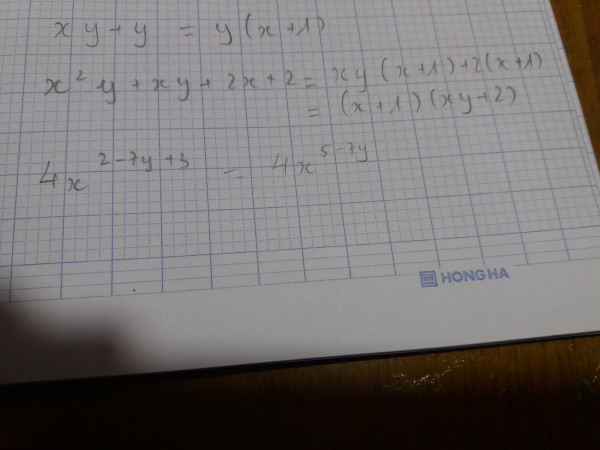 xy + y = y(x+1)
x²y + xy + 2x + 2 = xy(x+1)+2(x+1)
= (x+1)(xy+2)
4x^{2-7y+3} = 4x^{5-7y}
HONG HA